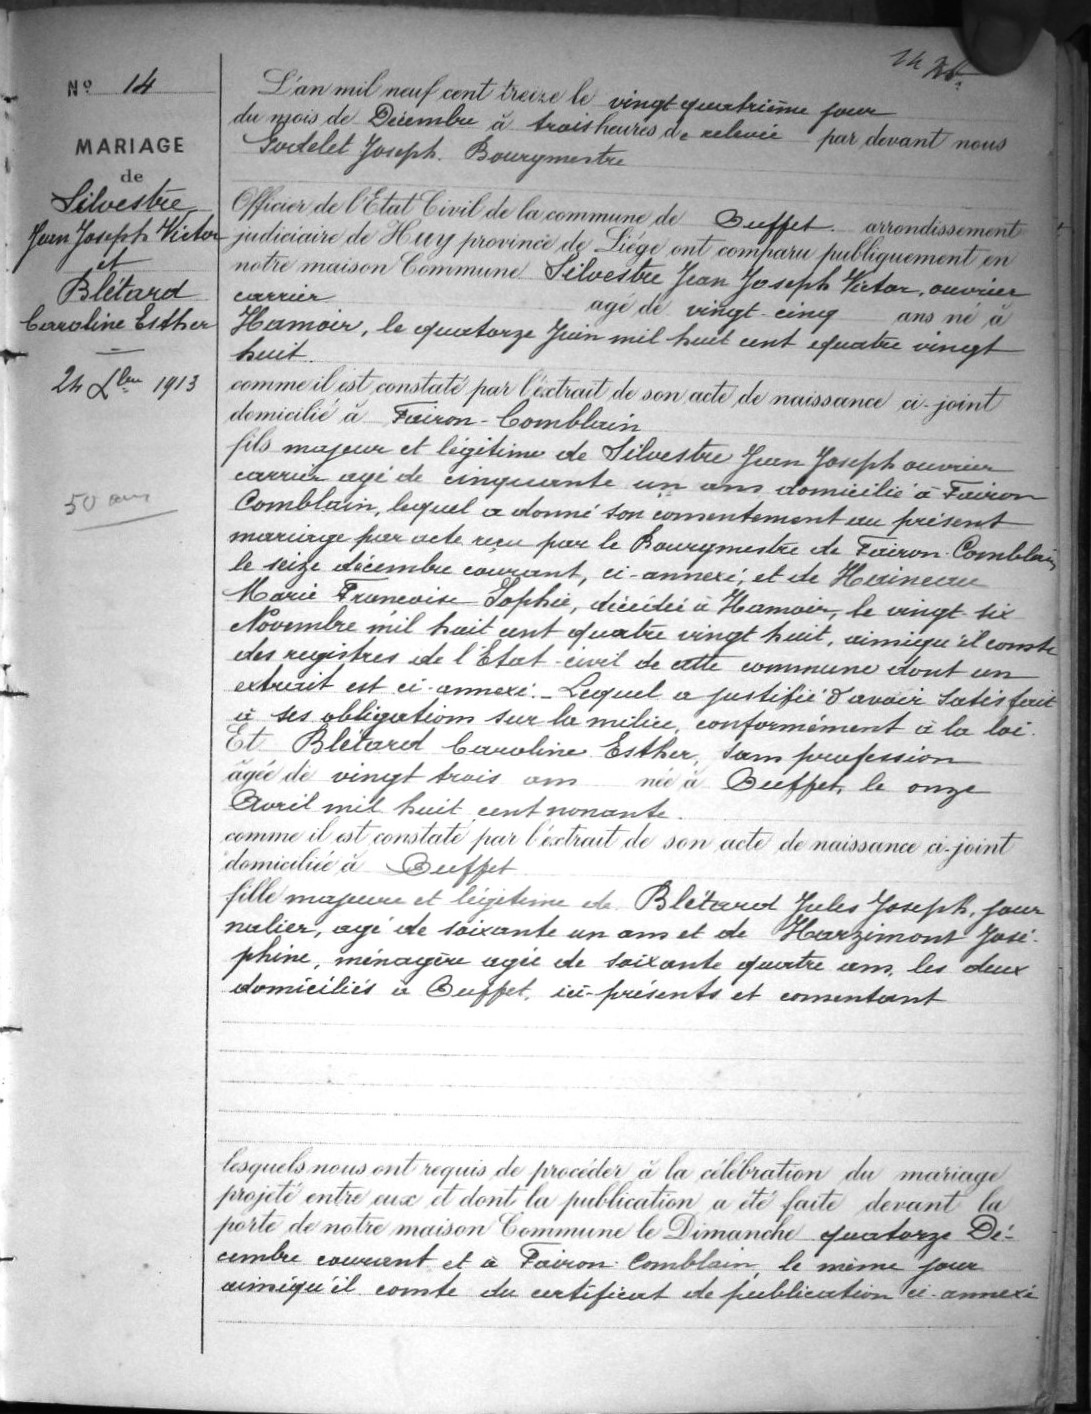 14 26
Nº 14
MARIAGE
de
Silvestre
Jean Joseph Victor
et
Blétard
Caroline Esther
24 Xbre 1913
50 ans
L'an mil neuf cent treize le vingt quatrième jour
du mois de Décembre à trois heures de relevée par devant nous
Joseph. Bourgmestre
Officier de l'Etat Civil de la commune de Ouffet. arrondissement
judiciaire de Huy province de Liége ont comparu publiquement en
notre maison Commune Silvestre Jean Joseph Victor, ouvrier
carrier agé de vingt-cinq ans né à
Hamoir, le quatorze Juin mil huit cent quatre vingt
huit.
comme il est constaté par l'éxtrait de son acte de naissance ci-joint
domicilié à Fairon-Comblain
fils majeur et légitime de Silvestre Jean Joseph ouvrier
carrier agé de cinquante un ans domicilié à Fairon
Comblain, lequel a donné son consentement au présent
mariage par acte reçu par le Bourgmestre de Fairon-Comblain
le seize décembre courant, ci-annexé; et de Haineau
Marie Francoise Sophie, décédée à Hamoir, le vingt six
Novembre mil huit cent quatre vingt huit, ainsi qu'il conste
des registres de l'Etat-civil de cette commune dont un
extrait est ci-annexé. - Lequel a justifié d'avoir satisfait
à ses obligations sur la milice, conformément à la loi.
Et Blétard Caroline Esther, sans profession
âgée de vingt trois ans née à Ouffet, le onze
Avril mil huit cent nonante.
comme il est constaté par l'éxtrait de son acte de naissance ci-joint
domiciliée à Ouffet
fille majeure et légitime de Blétard Jules Joseph, jour
nalier, agé de soixante un ans et de Harzimont José-
phine, ménagère agée de soixante quatre ans, les deux
domiciliés à Ouffet, ici-présents et consentant
lesquels nous ont requis de procéder à la célébration du mariage
projeté entre eux et dont la publication a été faite devant la
porte de notre maison Commune le Dimanche quatorze Dé-
cembre courant et à Fairon Comblain, le même jour
ainsi qu'il conste du certificat de publication ci-annexé